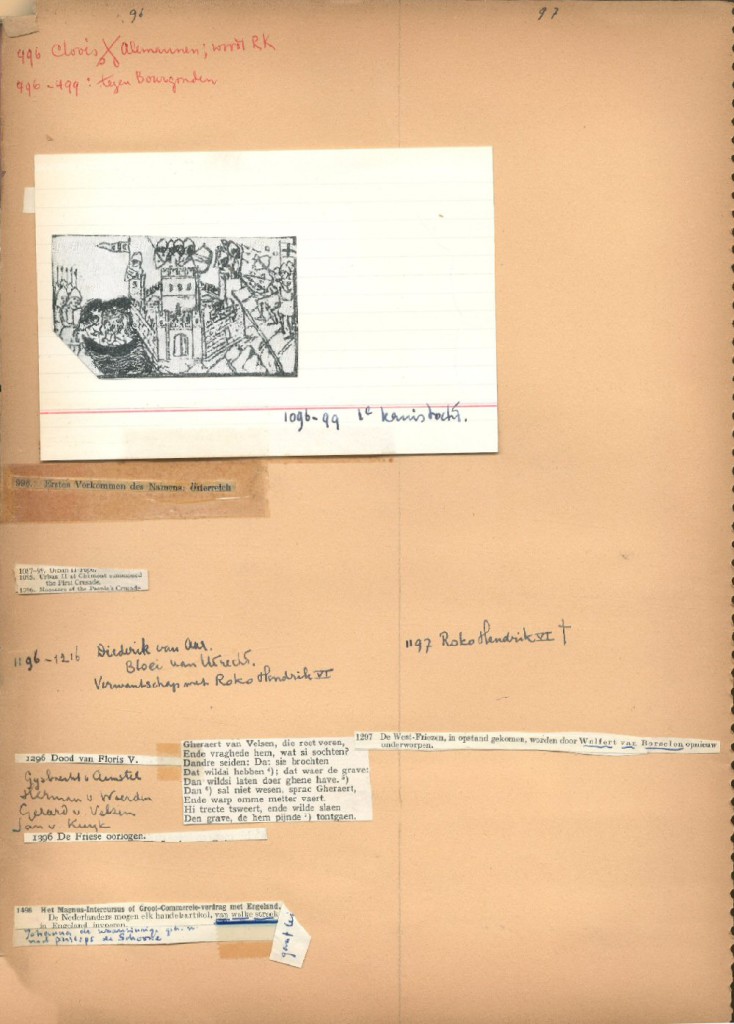 96
97
496 Clovis Alemannen; wordt RK
496-499: tegen Bourgonden
1096-99 1e kruistocht.
996. Erstes Vorkommen des Namens: Österreich
1095. Urban II at Clermont summoned
the First Crusade.
1096. Massacre of the People's Crusade
1196-1216 Diederik van Aar.
Bloei van Utrecht.
Verwantschap met Roko Hendrik VI
1197 Roko Hendrik VI †
1296 Dood van Floris V.
Gysbrecht v Amstel
Herman v Woerden
Gerard v Velsen
Jan v Kuyk
1396 De Friese oorlogen.
Gheraert van Velsen, die root voren,
Ende vraghede hem, wat si sochten?
Dandre seiden: Dat sie brochten
Dat wildsi hebben ⁴); dat waer de grave:
Dan wildsi laten doer ghene have.
Dan sal niet wesen, sprac Gheraert,
Ende warp omme metter vaert.
Hi trecte tsweert, ende wilde slaen
Den grave, de hem pijnde ⁷) tontgaen.
1297 De West-Friezen, in opstand gekomen, worden door Wolfert van Borselen opnieuw
onderworpen.
1496 Het Magnus-Intercursus of Groot-Commercie-verdrag met Engeland.
De Nederlanders mogen elk handelsartikel, van welke streek
in Engeland invoeren.
Johanna de waanzinnige
Philips de Schoone